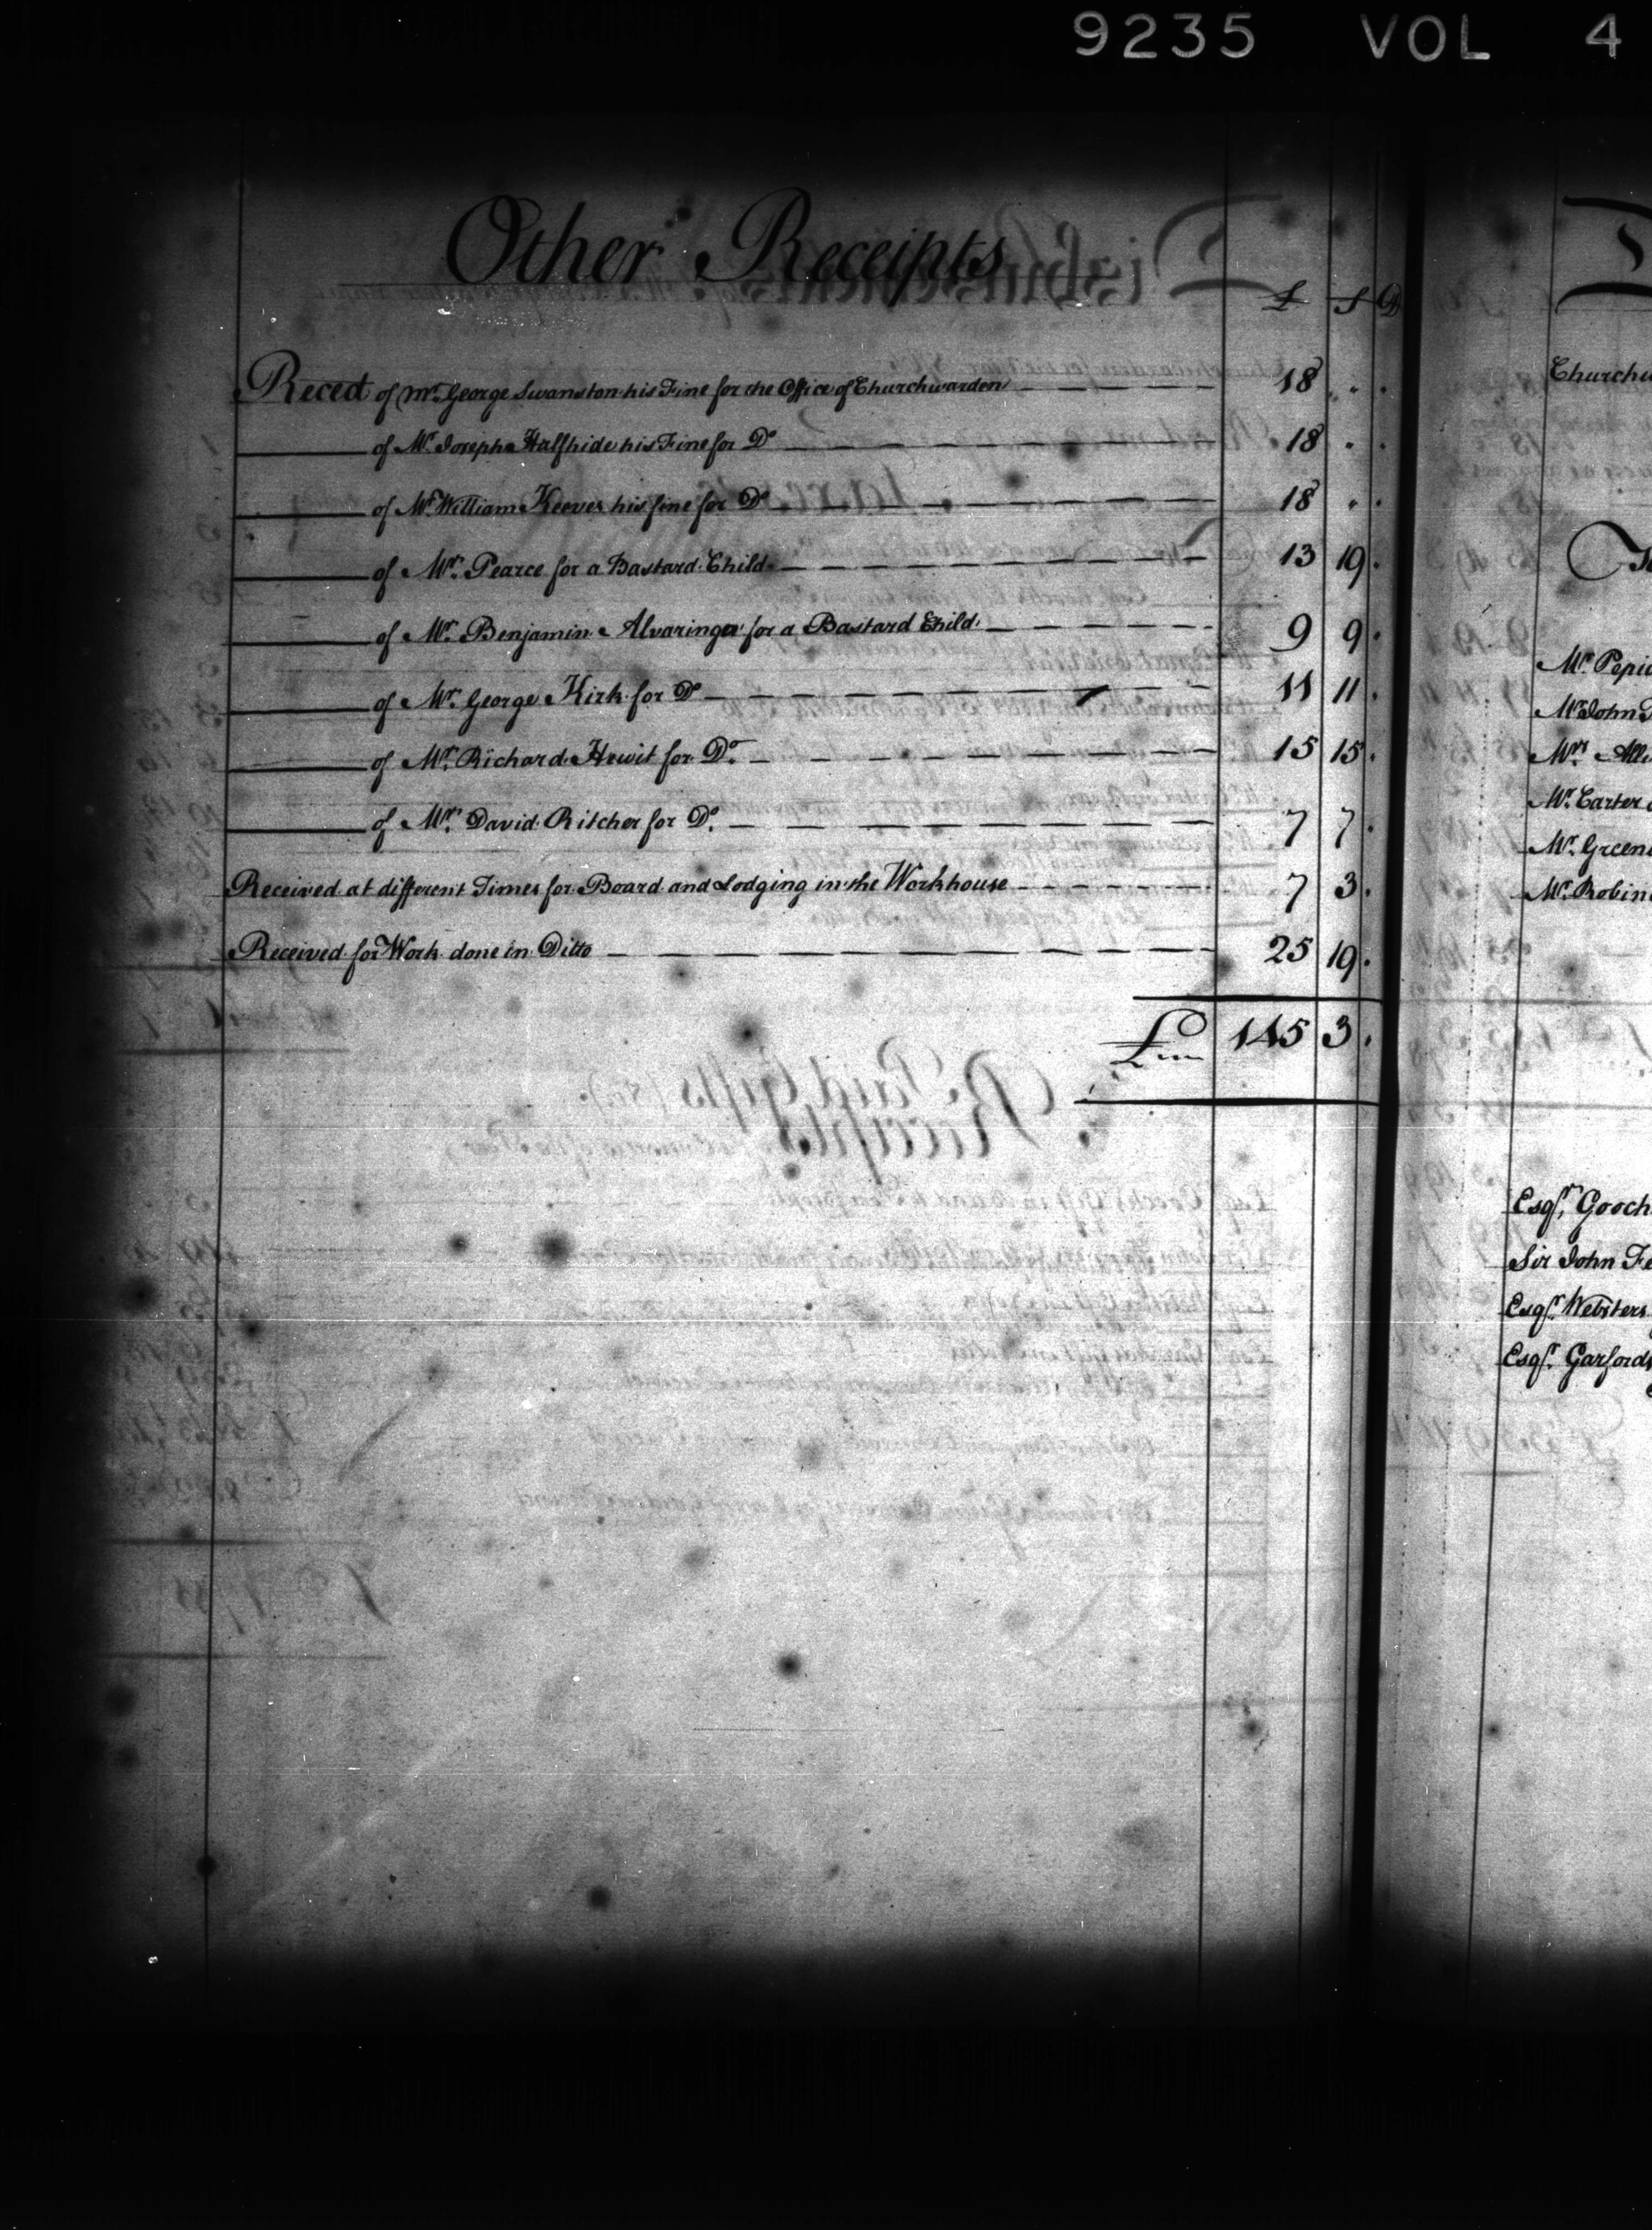 9235 VOL 4
Other Receipts
£ S D
Reced of Mr. George Swanston his Fine for the Office of Churchwarden 18 . .
of Mr. Joseph Halfhide his Fine for Do 18 . .
of Mr. William Keeves his fine for Do 18 . .
of Mr. Pearce for a Bastard Child 13 19 .
of Mr. Benjamin Alvaringa for a Bastard Child 9 9 .
of Mr. George Kirk for Do 11 11 .
of Mr. Richard Hewit for Do. 15 15 .
of Mr. David Ritcher for Do. 7 7 .
Received at different Times for Board and Lodging in the Workhouse 7 3 .
Received for Work done in Ditto 25 19 .
£ 145 3 .
Mr. John
Mr. Carter
Esqr. Gooch
Sir John
Esqr. Websters
Esqr. Garfords